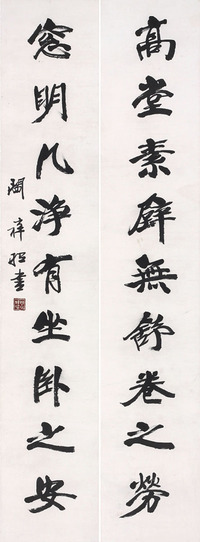 高堂素壁無舒卷之勞
窓明几淨有坐卧之安
閻梓昭書